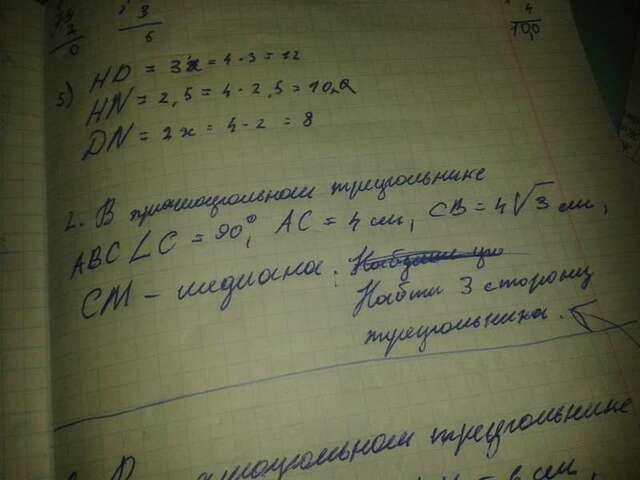 3
6
0
4
10,0
5) HD = 3x = 4·3 = 12
HN = 2,5 = 4·2,5 = 10,0
DN = 2x = 4·2 = 8
2. В прямоугольном треугольнике
ABC ∠C = 90°, AC = 4 см, CB = 4√3 см,
CM – медиана.
Найти 3 сторону
треугольника.
треугольнике
см,